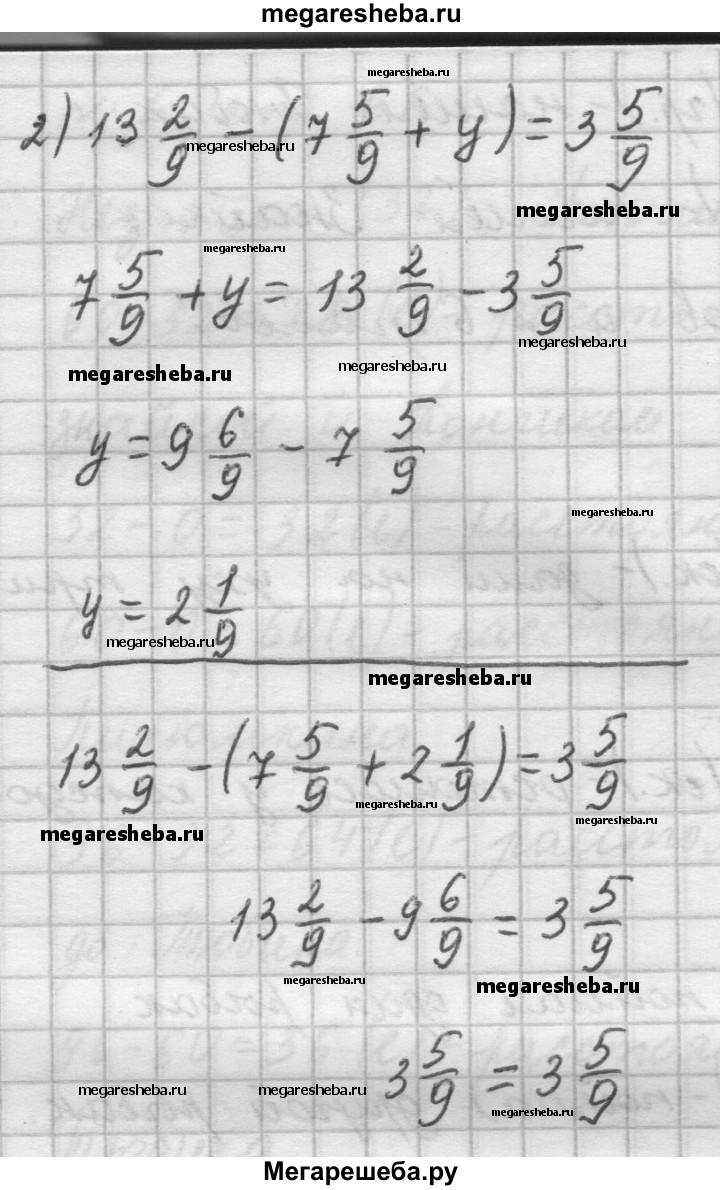 megaresheba.ru
megaresheba.ru
2) 13 2/9 - (7 5/9 + y) = 3 5/9
megaresheba.ru
megaresheba.ru
megaresheba.ru
7 5/9 + y = 13 2/9 - 3 5/9
megaresheba.ru
megaresheba.ru
megaresheba.ru
y = 9 6/9 - 7 5/9
megaresheba.ru
y = 2 1/9
megaresheba.ru
megaresheba.ru
13 2/9 - (7 5/9 + 2 1/9) = 3 5/9
megaresheba.ru
megaresheba.ru
megaresheba.ru
13 2/9 - 9 6/9 = 3 5/9
megaresheba.ru
megaresheba.ru
3 5/9 = 3 5/9
megaresheba.ru
megaresheba.ru
megaresheba.ru
Мегарешеба.ру